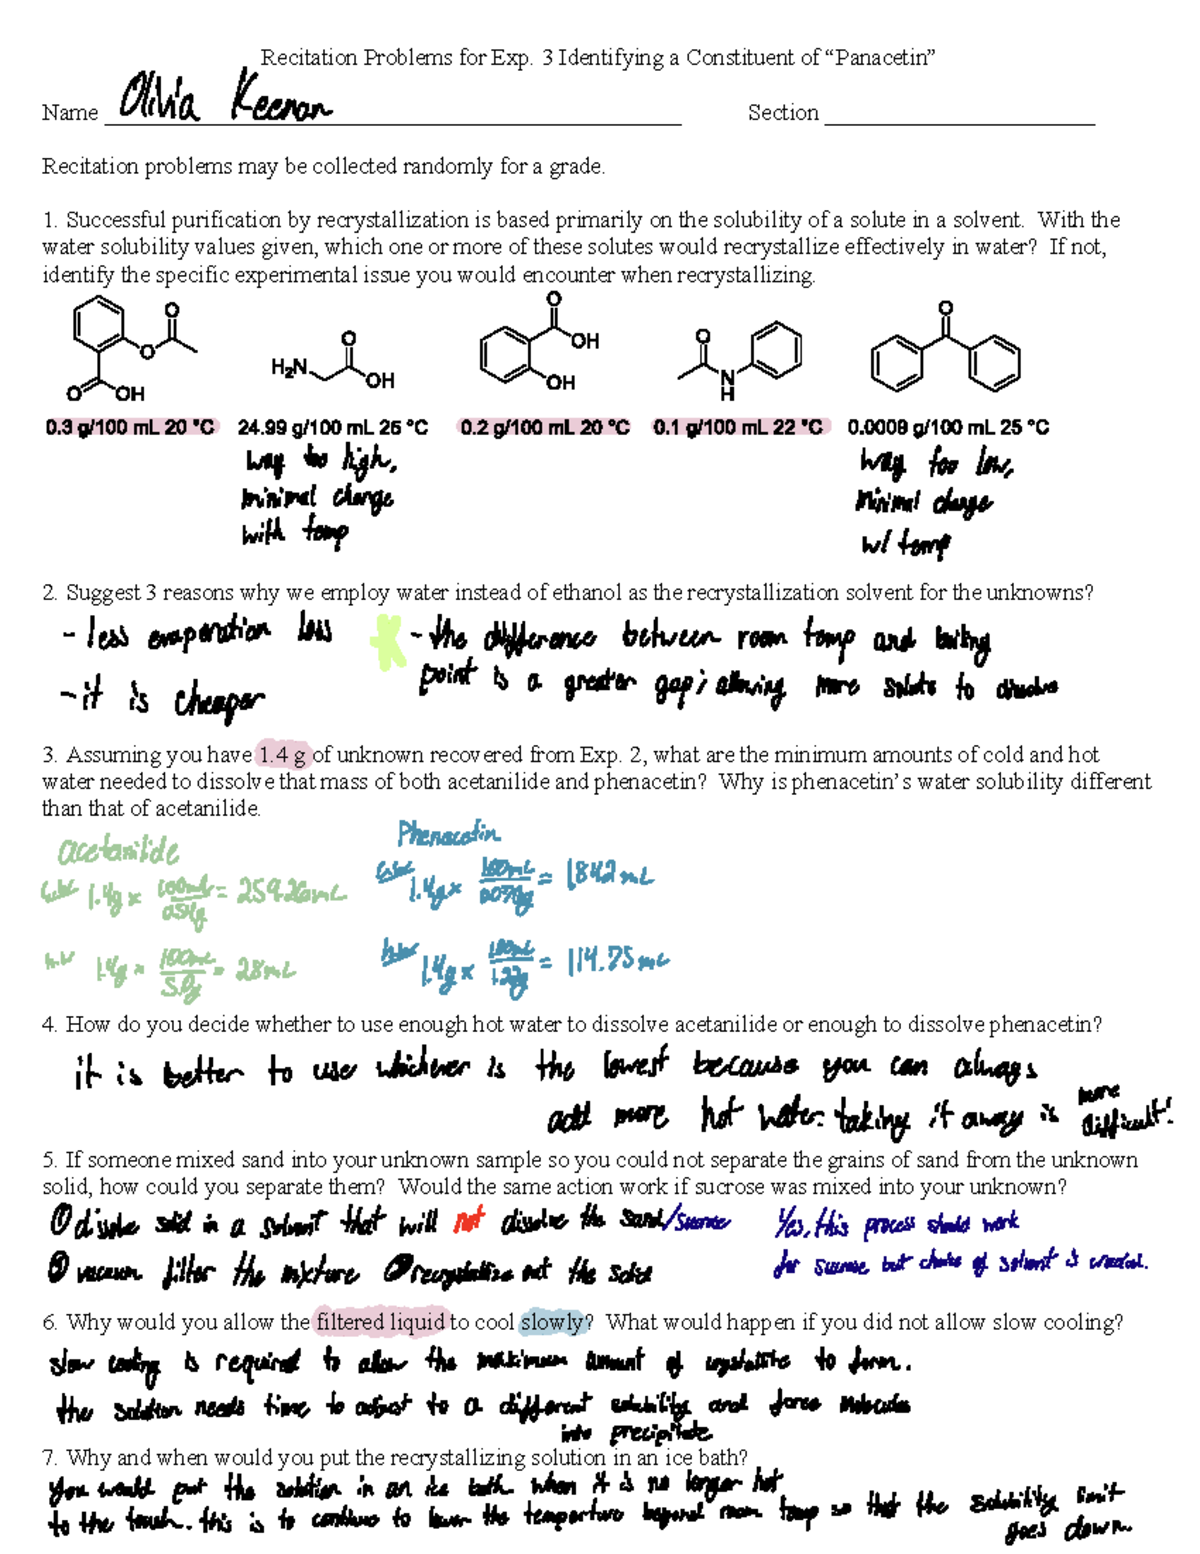 Recitation Problems for Exp. 3 Identifying a Constituent of “Panacetin”
Name Olivia Keenan Section
Recitation problems may be collected randomly for a grade.
1. Successful purification by recrystallization is based primarily on the solubility of a solute in a solvent. With the
water solubility values given, which one or more of these solutes would recrystallize effectively in water? If not,
identify the specific experimental issue you would encounter when recrystallizing.
O O OH O
H2N O OH
O OH OH
O N H
O
0.3 g/100 mL 20 °C 24.99 g/100 mL 25 °C 0.2 g/100 mL 20 °C 0.1 g/100 mL 22 °C 0.0008 g/100 mL 25 °C
way too high, way too low,
minimal change minimal change
with temp w/ temp
2. Suggest 3 reasons why we employ water instead of ethanol as the recrystallization solvent for the unknowns?
- less evaporation loss - the difference between room temp and boiling
point is a greater gap; allowing more solute to dissolve
- it is cheaper
3. Assuming you have 1.4 g of unknown recovered from Exp. 2, what are the minimum amounts of cold and hot
water needed to dissolve that mass of both acetanilide and phenacetin? Why is phenacetin’s water solubility different
than that of acetanilide.
acetanilide Phenacetin
1.4g × 100mL/0.54g = 259.26mL 1.4g × 100mL/0.076g = 1,842 mL
1.4g × 100mL/5.0g = 28mL 1.4g × 100mL/1.22g = 114.75 mL
4. How do you decide whether to use enough hot water to dissolve acetanilide or enough to dissolve phenacetin?
it is better to use whichever is the lowest because you can always
add more hot water. taking it away is more difficult!
5. If someone mixed sand into your unknown sample so you could not separate the grains of sand from the unknown
solid, how could you separate them? Would the same action work if sucrose was mixed into your unknown?
dissolve solid in a solvent that will not dissolve the sand/sucrose Yes, this process should work
vacuum filter the mixture recrystallize out the solid for sucrose but choice of solvent is crucial.
6. Why would you allow the filtered liquid to cool slowly? What would happen if you did not allow slow cooling?
slow cooling is required to allow the maximum amount of crystallite to form.
the solution needs time to adjust to a different solubility and force molecules
into precipitate
7. Why and when would you put the recrystallizing solution in an ice bath?
you would put the solution in an ice bath when it is no longer hot
to the touch. this is to continue to lower the temperture beyond room temp so that the solubility limit
goes down.